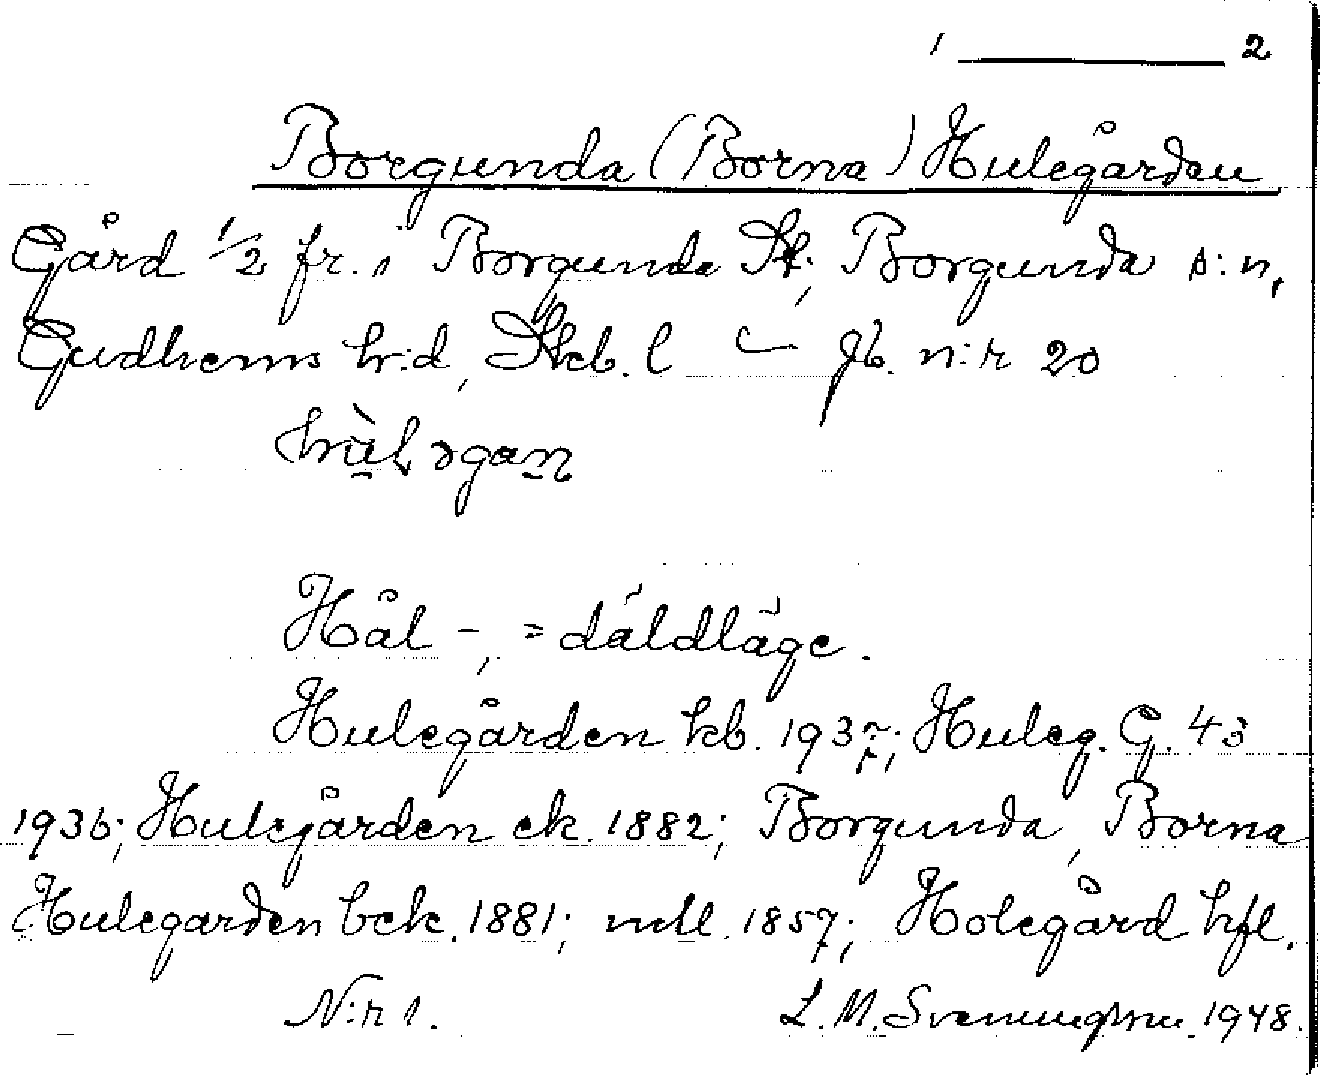 1 ———— 2
Borgunda (Borna) Hulegården
Gård 1/2 fr. i Borgunda St., Borgunda s:n,
Gudhems h:d, Skb. l — Jb. n:r 20
Hål -, = däldläge.
Hulegården kb. 1937; Huleg. G. 43
1936; Hulegården ek. 1882; Borgunda, Borna
Hulegarden bek. 1881; 1857; Holegård hfl.
N:r 1. L. M. Svenungsson 1948.